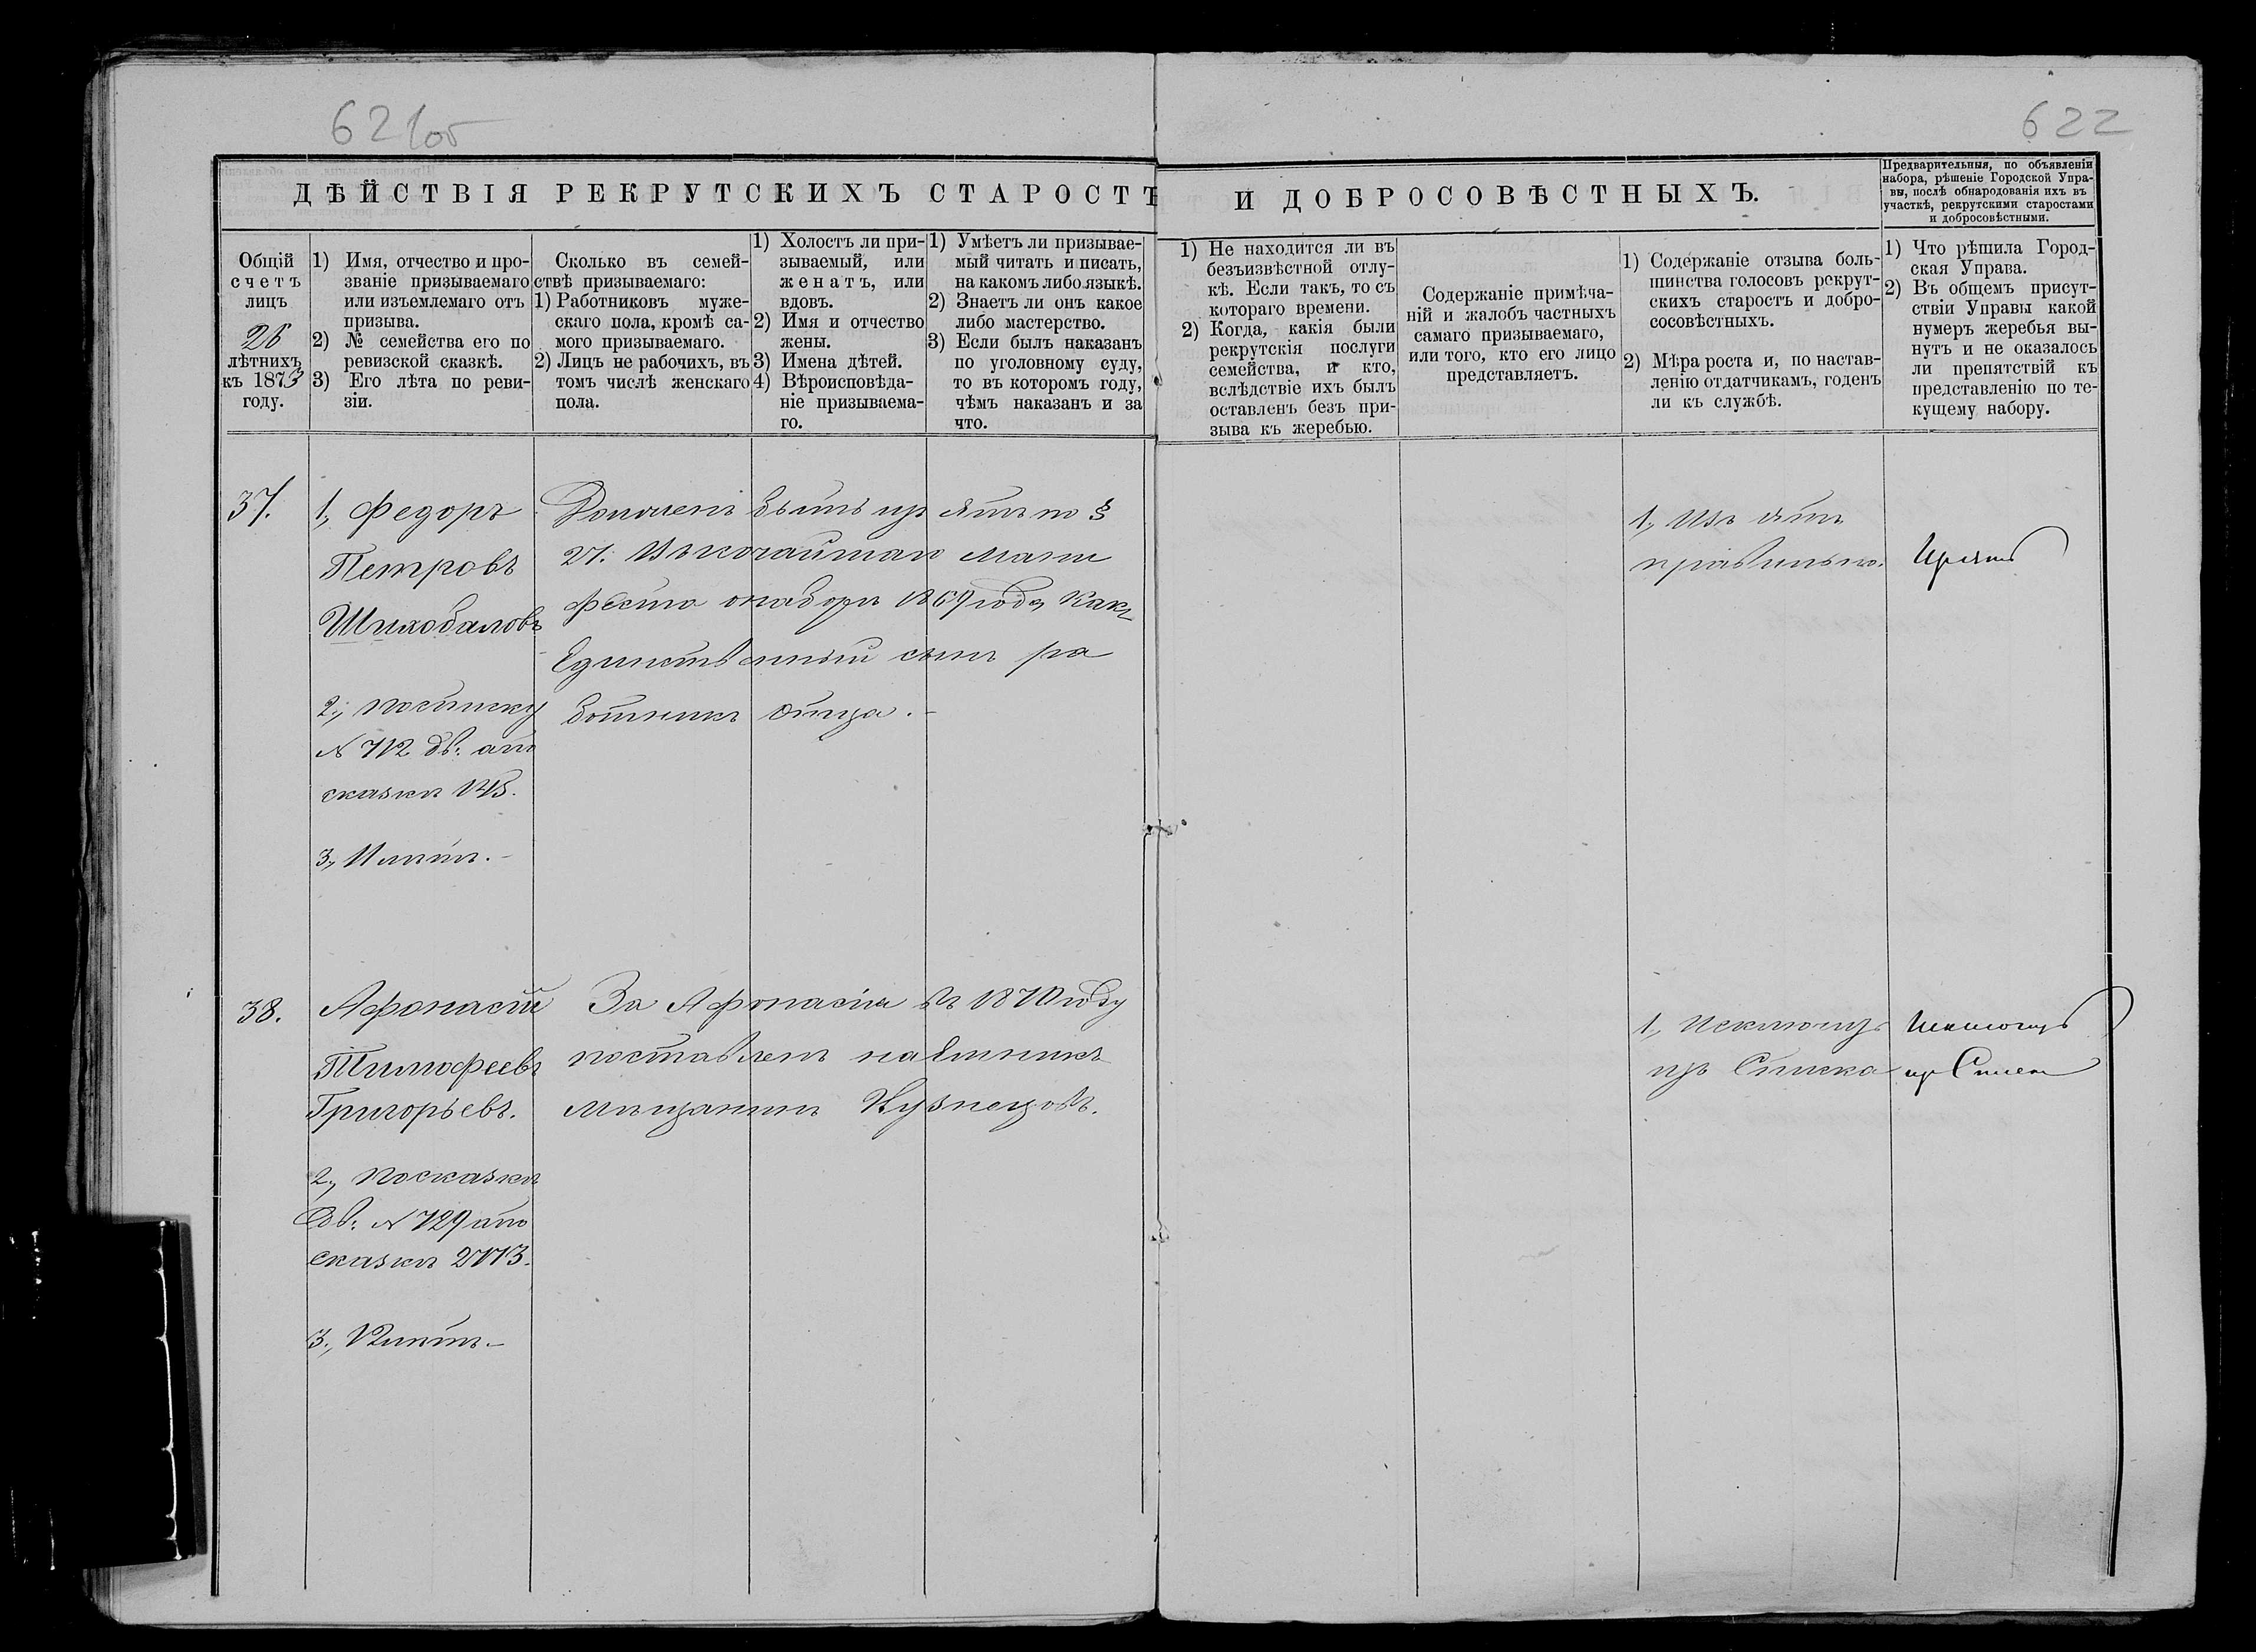 621об
622
ДѢЙСТВІЯ РЕКРУТСКИХЪ СТАРОСТЪ И ДОБРОСОВѢСТНЫХЪ.
Предварительныя, по объявленіи
набора, рѣшеніе Городской Упра-
вы, послѣ обнародованія ихъ въ
участкѣ, рекрутскими старостами
и добросовѣстными.
Общій
счетъ
лицъ
26
лѣтнихъ
къ 1873
году.
1) Имя, отчество и про-
званіе призываемаго
или изъемлемаго отъ
призыва.
2) № семейства его по
ревизской сказкѣ.
3) Его лѣта по реви-
зіи.
Сколько въ семей-
ствѣ призываемаго:
1) Работниковъ муже-
скаго пола, кромѣ са-
мого призываемаго.
2) Лицъ не рабочихъ, въ
томъ числѣ женскаго
пола.
1) Холостъ ли при-
зываемый, или
женатъ, или
вдовъ.
2) Имя и отчество
жены.
3) Имена дѣтей.
4) Вѣроисповѣда-
ніе призываема-
го.
1) Умѣетъ ли призывае-
мый читать и писать,
на какомъ либо языкѣ.
2) Знаетъ ли онъ какое
либо мастерство.
3) Если былъ наказанъ
по уголовному суду,
то въ которомъ году,
чѣмъ наказанъ и за
что.
1) Не находится ли въ
безъизвѣстной отлу-
кѣ. Если такъ, то съ
котораго времени.
2) Когда, какія были
рекрутскія послуги
семейства, и кто,
вслѣдствіе ихъ былъ
оставленъ безъ при-
зыва къ жеребью.
Содержаніе примѣча-
ній и жалобъ частныхъ
самаго призываемаго,
или того, кто его лицо
представляетъ.
1) Содержаніе отзыва боль-
шинства голосовъ рекрут-
скихъ старостъ и добро-
сосовѣстныхъ.
2) Мѣра роста и, по настав-
ленію отдатчикамъ, годенъ
ли къ службѣ.
1) Что рѣшила Город-
ская Управа.
2) Въ общемъ присут-
ствіи Управы какой
нумеръ жеребья вы-
нутъ и не оказалось
ли препятствій къ
представленію по те-
кущему набору.
37.
1, Федоръ
Петровъ
Шихобаловъ
2, По списку
N 712 дв: а по
сказкѣ 145.
3, 11 лѣтъ.
Долженъ быть изъятъ по §
27. Высочайшаго Мани
феста о наборѣ 1869 года, какъ
Единственный сынъ ра
ботникъ отца.
1, Изъятъ
правильно.
38.
Афонасій
Тимофеевъ
Григорьевъ.
2, По сказкѣ
дв: N 729 а по
сказкѣ 2773.
3, 12 лѣтъ.
За Афонасія въ 1870 году
поставленъ наемникъ
мѣщанинъ Кузнецовъ.
1, Исключить
изъ Списка
Исключить
изъ Списка